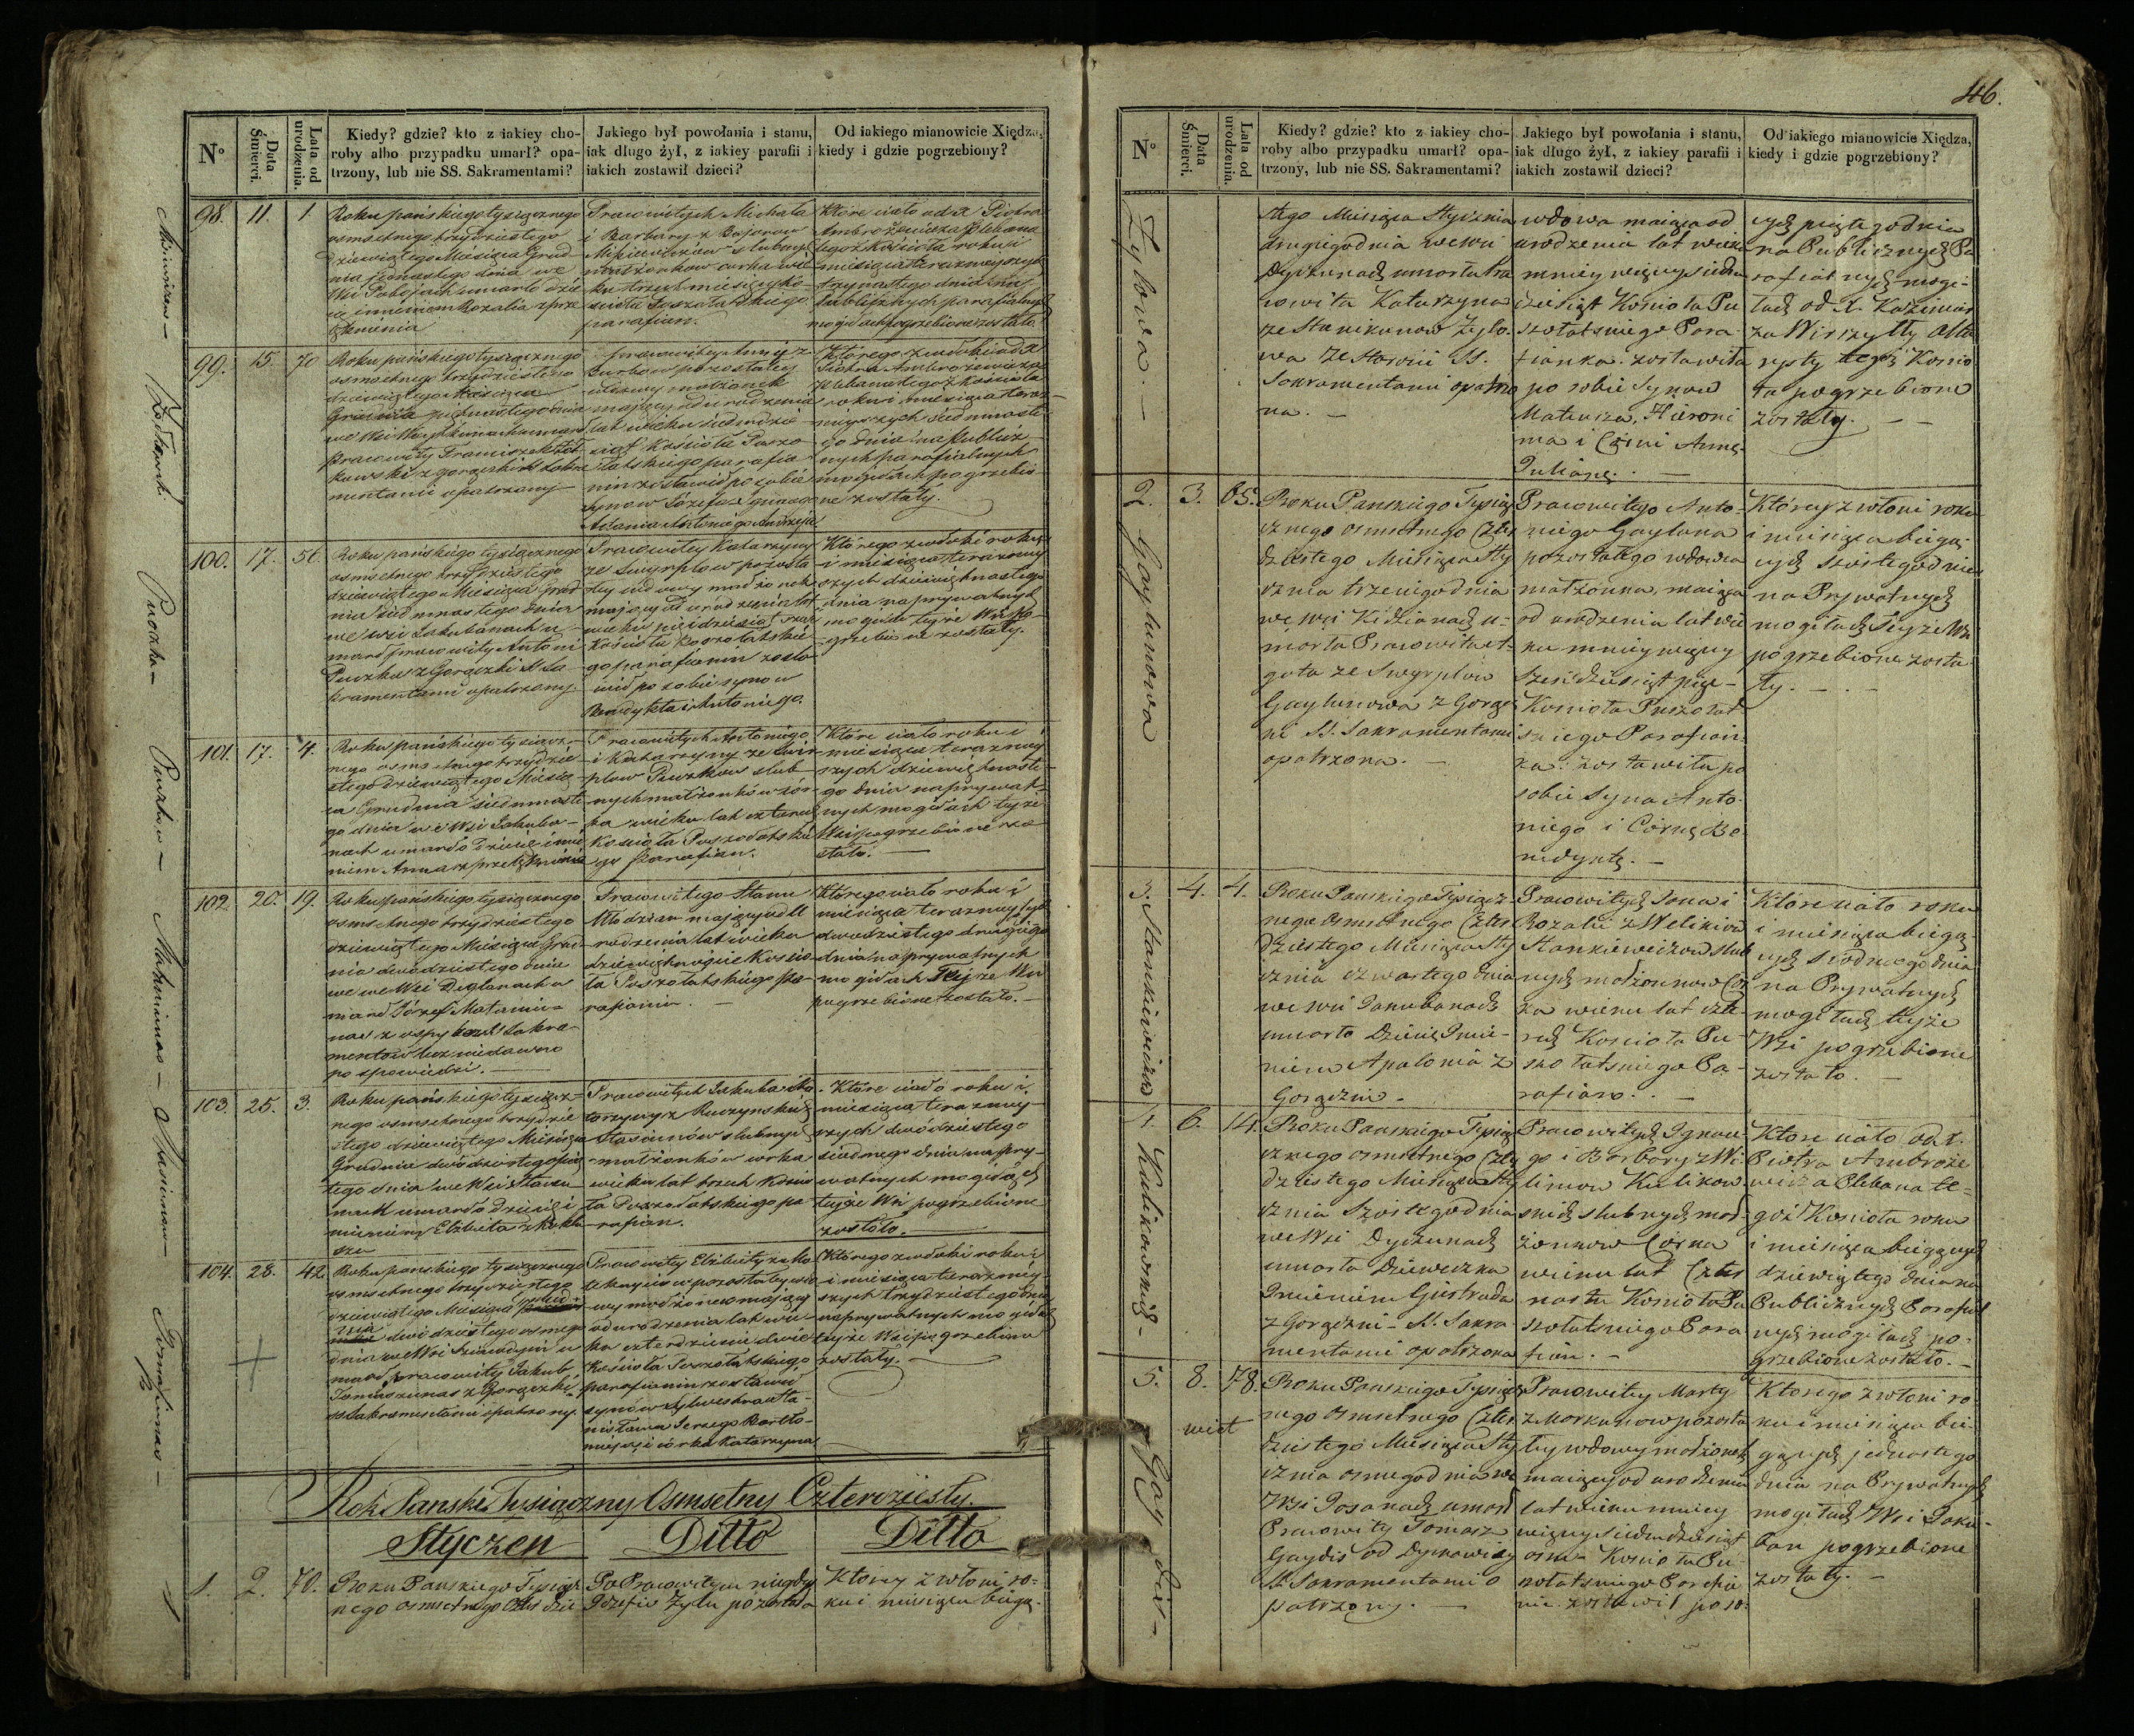 46.
N°
Data Śmierci.
Lata od urodzenia.
Kiedy? gdzie? kto z iakiey cho-
roby albo przypadku umarł? opa-
trzony, lub nie SS. Sakramentami?
Jakiego był powołania i stanu,
iak długo żył, z iakiey parafii i
iakich zostawił dzieci?
Od iakiego mianowicie Xiędza,
kiedy i gdzie pogrzebiony?
98. 11. 1.
Roku pańskiego tysiącznego
osmsetnego trzydziestego
dziewiątego Miesiąca Grud
nia jedenastego dnia we
Wsi Pobojach umarło dzie
cie imieniem Rozalia z prze
Prawowitych Michała
i Barbary z Bajorow
ślubnych
małżonkow corka wie
ku trzech miesięcy Ko-
ścioła Poszołatskiego
parafian.
Które ciało od X Piotra
Ambrożewicza Plebana
tegoż Kościoła roku i
miesiąca teraznieyszych
trzynastego dnia na
publicznych parafialnych
mogiłach pogrzebione zostało.
99. 15. 70
Roku pańskiego tysiącznego
osmsetnego trzydziestego
dziewiątego Miesiąca
Grudnia pietnastego dnia
we Wsi umarł
Pracowity Franciszek Żoł
kowski z gorączki SS Sakra
mentami opatrzony
Pracowitey Anny z
pozostałey
wdowy małżonek
mający od urodzenia
lat wieku siedmdzie
siąt Kościoła Poszo
łatskiego parafia
nin zostawił po sobie
synow Józefa Ignacego
Adama Antoniego Andrzeja
Którego zwłoki od X
Piotra Ambrożewicza
Plebana tegoż Kościoła
roku i miesiąca teraz-
nieyszych siedmnaste
go dnia na publicz
nych parafialnych
mogiłach pogrzebio
ne zostały.
100. 17. 56
Roku pańskiego tysiącznego
osmsetnego trzydziestego
dziewiątego Miesiąca Grud
nia siedmnastego dnia
we wsi Jakubanach u-
marł pracowity Antoni
Puczka z Gorączki SS Sa
kramentami opatrzony
Pracowitey Katarzyny
ze Swyrplow pozosta
łey wdowy małżonek
mający od urodzenia lat
wieku pięćdziesiąt sześć
Kościoła Poszołatskie
go parafianin zosta
wił po sobie synow
Benedykta i Antoniego.
Którego zwłoki roku
i miesiąca terazniey
szych dziewiętnastego
dnia na prywatnych
mogiłach teyże Wsi po
grzebione zostały.
101. 17. 4.
Roku pańskiego tysiącz-
nego osmsetnego trzydzie
stego dziewiątego Miesią
ca Grudnia siedmnaste
go dnia we Wsi Jakuba-
nach umarło dziecie imie
niem Anna z
Pracowitych Antoniego
i Katarzyny ze Swir
plow Puczkow ślub-
nych małżonkow cór-
ka wieku lat czterech
Kościoła Poszołatskie
go Parafian.
Które ciało roku i
miesiąca teraźniey
szych dziewiętnaste
go dnia na prywat-
nych mogiłach teyże
Wsi pogrzebione zo
stało.
102 20. 19.
Roku pańskiego tysiącznego
osmsetnego trzydziestego
dziewiątego Miesiąca Grud-
nia dwudziestego dnia
we Wsi u
marł Józef
nas z ospy bez SS Sakra-
mentow lecz niedawno
po spowiedzi.
Pracowitego Stanu
Młodzian mający od U
rodzenia lat wieku
dziewiętnaście Koscio-
ła Poszołatskiego Pa-
rafianin.
Którego ciało roku i
miesiąca teraznieyszych
dwudziestego drugiego
dnia na prywatnych
mogiłach Teyże Wsi
pogrzebione zostało.
103. 25. 3.
Roku pańskiego tysiącz-
nego osmsetnego trzydzie
stego dziewiątego Miesiąca
Grudnia dwudziestego pią
tego dnia we Wsi
nach umarło dziecie i
mieniem Elżbieta z Koklu
szu
Pracowitych Jakuba i Ka
tarzyny z Ruczyńskich
Stasiunow ślubnych
małżonków corka
wieku lat trzech Kościo
ła Poszołatskiego pa
rafian.
Które ciało roku i
miesiąca teraźniey-
szych dwudziestego
siódmego dnia na pry-
watnych mogiłach
teyże Wsi pogrzebione
zostało.
104. 28. 42
Roku pańskiego tysiącznego
osmsetnego trzydziestego
dziewiątego Miesiąca Grud
nia dwudziestego osmego
dnia we Wsi u
marł Pracowity Jakub
Tomaszunas z Gorączki
SS Sakramentami opatrzony.
Pracowitey Elżbiety
pozostałey wdo
wy małżonek mający
od urodzenia lat wie-
ku czterdzieście dwie
Kościoła Poszołatskiego
parafianin zostawił
synów Sylwestra Sta-
nisława Jerzego Bartło-
mieja i córkę Katarzynę
Którego zwłoki roku
i miesiąca teraźniey-
szych trzydziestego dnia
na prywatnych mogiłach
teyże Wsi pogrzebione
zostały.
Rok Panski Tysiączny Osmsetny Czterdziesty.
Styczeń Ditto Ditto
1. 2. 70.
Roku Panskiego Tysiącz
nego osmsetnego Czterdzie
Po Pracowitym niegdy
Jozefie Żyłu pozostała
Ktorey zwłoki ro-
ku i miesiąca bieżą-
N°
Data Śmierci.
Lata od urodzenia.
Kiedy? gdzie? kto z iakiey cho-
roby albo przypadku umarł? opa-
trzony, lub nie SS. Sakramentami?
Jakiego był powołania i stanu,
iak długo żył, z iakiey parafii i
iakich zostawił dzieci?
Od iakiego mianowicie Xiędza,
kiedy i gdzie pogrzebiony?
Żyłowa.
stego Miesiąca Stycznia
drugiego dnia we wsi
Dyrzunach umarła Pra
cowita Katarzyna
ze Stanikunow Żyło
wa ze Starości SS.
Sakramentami opatrzo
na.
wdowa maiąca od
urodzenia lat wieku
mniey więcey siedm
dziesiąt Kosciola Pu
szołatskiego Para
fianka. zostawiła
po sobie Synow
Mateusza, Hieroni
ma i Córki Annę.
Julianę.
cych piątego dnia
na Publicznych Pa
rafialnych mogi-
łach od X. Kazimie
rza Wirszyłły Alta
rysty tegoż Koscio
ła pogrzebione
zostały.
2. 3. 65.
Gaylunowa
Roku Panskiego Tysiąc
znego osmsetnego Czter
dziestego Miesiąca Sty
cznia trzeciego dnia
we wsi Kidzianach u-
marła Pracowita A-
gata ze Swyrplow
Gaylunowa z Gorącz
ki SS. Sakramentami
opatrzona.
Pracowitego Anto-
niego Gayluna
pozostałego wdowca
małżonka, maiąca
od urodzenia lat wie
ku mniey więcey
sześćdziesiąt pięć-
Kosciola Puszołat
skiego Parafian
ka: zostawiła po
sobie Syna Anto-
niego i Córkę Be
nedyktę.
Ktorey zwłoki roku
i miesiąca bieżą-
cych szostego dnia
na Prywatnych
mogiłach teyże Wsi
pogrzebione zosta-
ły.
3. 4. 4.
Stankiewiczow
Roku Panskiego Tysiącz
nego Osmsetnego Czter
dziestego Miesiąca Sty
cznia czwartego dnia
we wsi Jakubanach
umarło Dziecię Imie-
niem Apolonia z
Gorączki
Pracowitych Jana i
Rozalii z Welikiow
Stankiewiczow ślub
nych małżonkow Cór
ka wieku lat czte-
rech Kosciola Pu-
szołatskiego Pa-
rafian.
Które ciało roku
i miesiąca bieżą-
cych siodmego dnia
na Prywatnych
mogiłach teyże
Wsi pogrzebione
zostało.
4. 6. 14.
Kulikowskich
Roku Panskiego Tysiąc
znego osmsetnego Czter
dziestego Miesiąca Sty
cznia Szostego dnia
we Wsi Dyrzunach
umarła Dziewczka
Imieniem Giertruda
z Gorączki SS. Sakra-
mentami opatrzona
Pracowitych Ignace
go i Barbary z Wi
limow Kulikow
skich ślubnych mał-
żonkow Córka
wieku lat Czter
naście Kosciola Pu
szołatskiego Para
fian.
Ktore ciało od X.
Piotra Ambroże
wicza Plebana te-
goż Kosciola roku
i miesiąca bieżących
dziewiątego dnia na
Publicznych Parafial
nych mogiłach po-
grzebione zostało.
5. 8. 78.
Gaydis
Roku Panskiego Tysiącz
nego Osmsetnego Czter
dziestego Miesiąca Sty
cznia osmego dnia we
Wsi umarł
Pracowity Tomasz
Gaydis od
SS. Sakramentami o
patrzony.
Pracowitey Marty
z Morkunow pozosta
łey wdowy małżonek
maiący od urodzenia
lat wieku mniey
więcey siedmdziesiąt
osm Kosciola Pu-
szołatskiego Parafia
nin zostawił po so-
Ktorego zwłoki ro-
ku i miesiąca bie-
żących jednastego
dnia na Prywatnych
mogiłach Wsi Jaku-
ban pogrzebione
zostały.